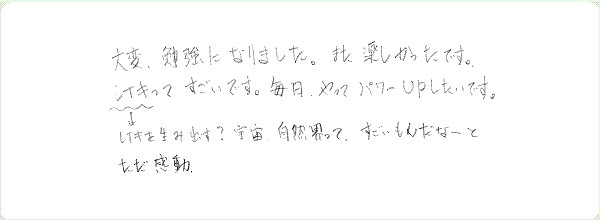 大変、勉強になりました。また楽しかったです。
レイキってすごいです。毎日、やってパワーUPしたいです。
↓
レイキを生み出す？宇宙、自然界って、すごいもんだなーと
ただ感動、